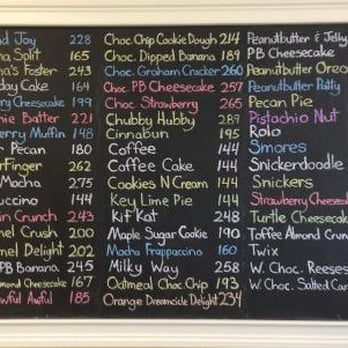 nd Joy 228
na Split 165
na's Foster 243
day Cake 164
ry Cheesecake 199
nie Batter 221
erry Muffin 148
er Pecan 180
rFinger 262
Mocha 275
uccino 144
in Crunch 243
mel Crush 200
mel Delight 202
PB Banana 245
lmond Cheesecake 167
wful Awful 185
Choc. Chip Cookie Dough 214
Choc. Dipped Banana 189
Choc. Graham Cracker 260
Choc. PB Cheesecake 257
Choc. Strawberry 265
Chubby Hubby 289
Cinnabun 195
Coffee 144
Coffee Cake 144
Cookies N Cream 144
Key Lime Pie 144
Kit Kat 248
Maple Sugar Cookie 190
Mocha Frappaccino 160
Milky Way 258
Oatmeal Choc. Chip 193
Orange Dreamcicle Delight 234
Peanutbutter & Jelly
PB Cheesecake
Peanutbutter Oreo
Peanutbutter Patty
Pecan Pie
Pistachio Nut
Rolo
Smores
Snickerdoodle
Snickers
Strawberry Cheesecak
Turtle Cheesecake
Toffee Almond Crun
Twix
W. Choc. Reeses
W. Choc. Salted Car